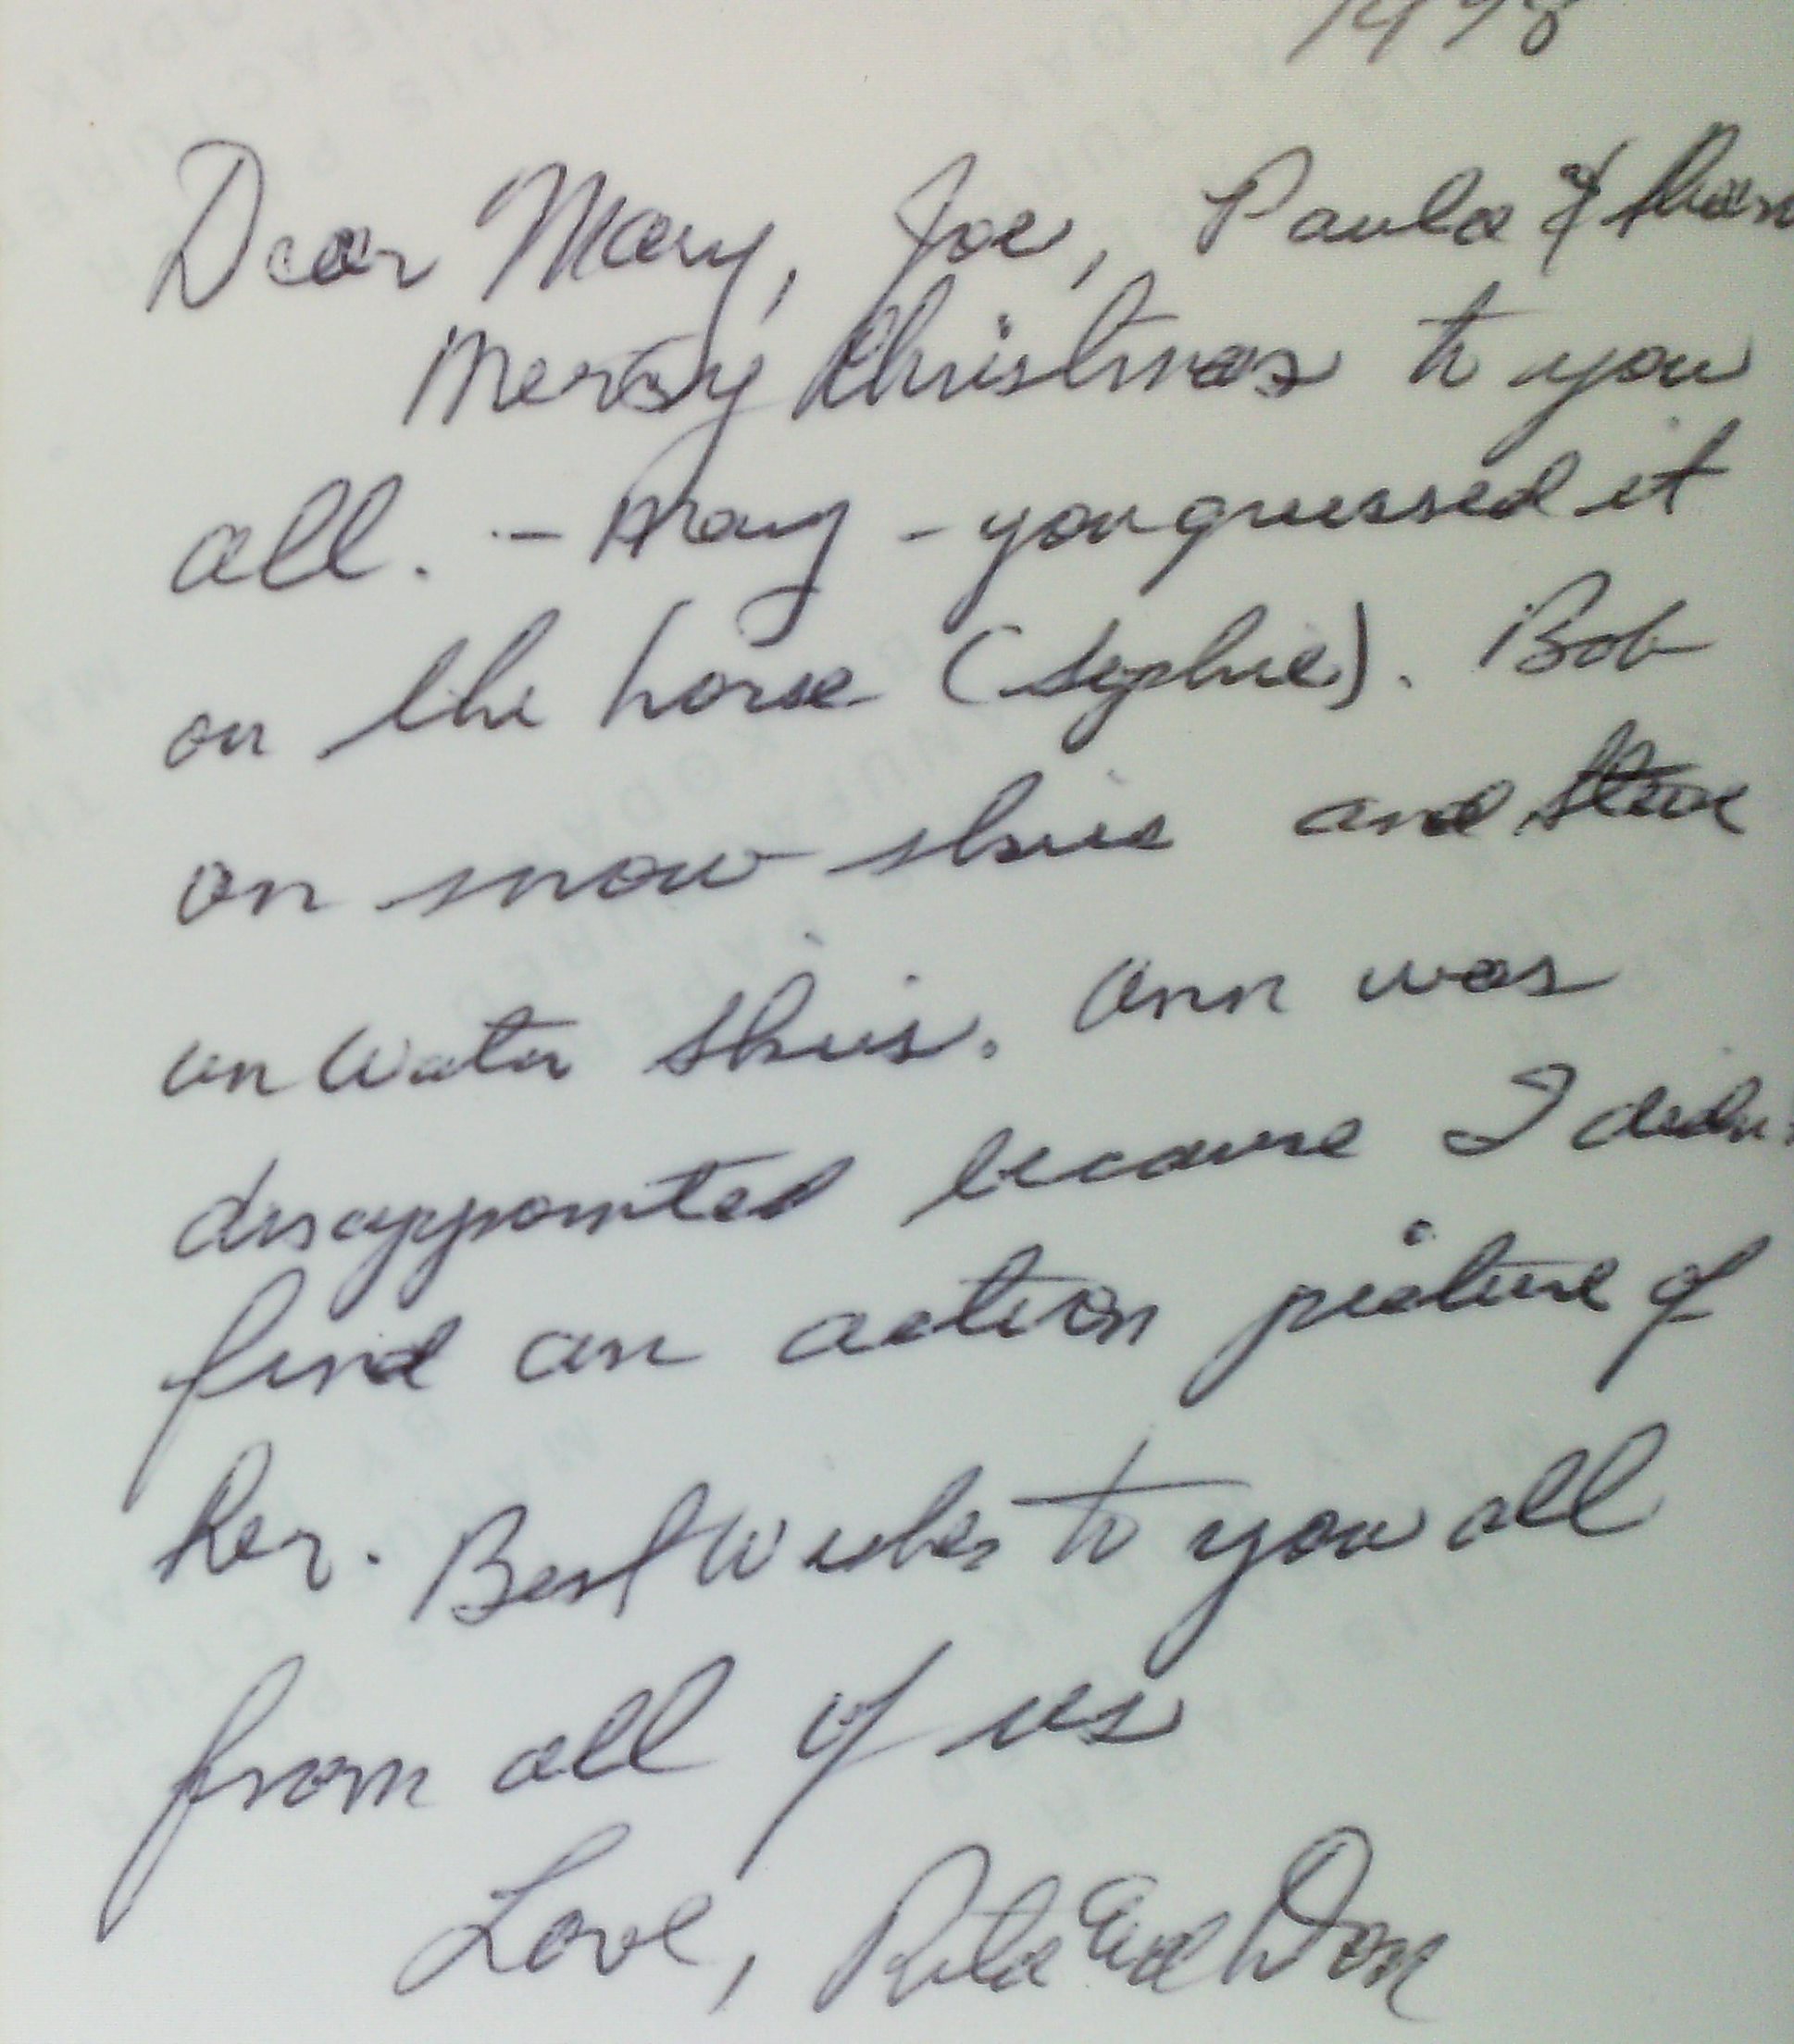 1978
Dear Mary, Joe, Paula &
Merry Christmas to you
all. - Mary - you guessed it
on the horse (Sophie). Bob
on snow skies and Steve
on Water Skiis. Ann was
disappointed because I didn
find an action picture of
her. Best Wishes to you all
from all of us
Love, Rita and Don